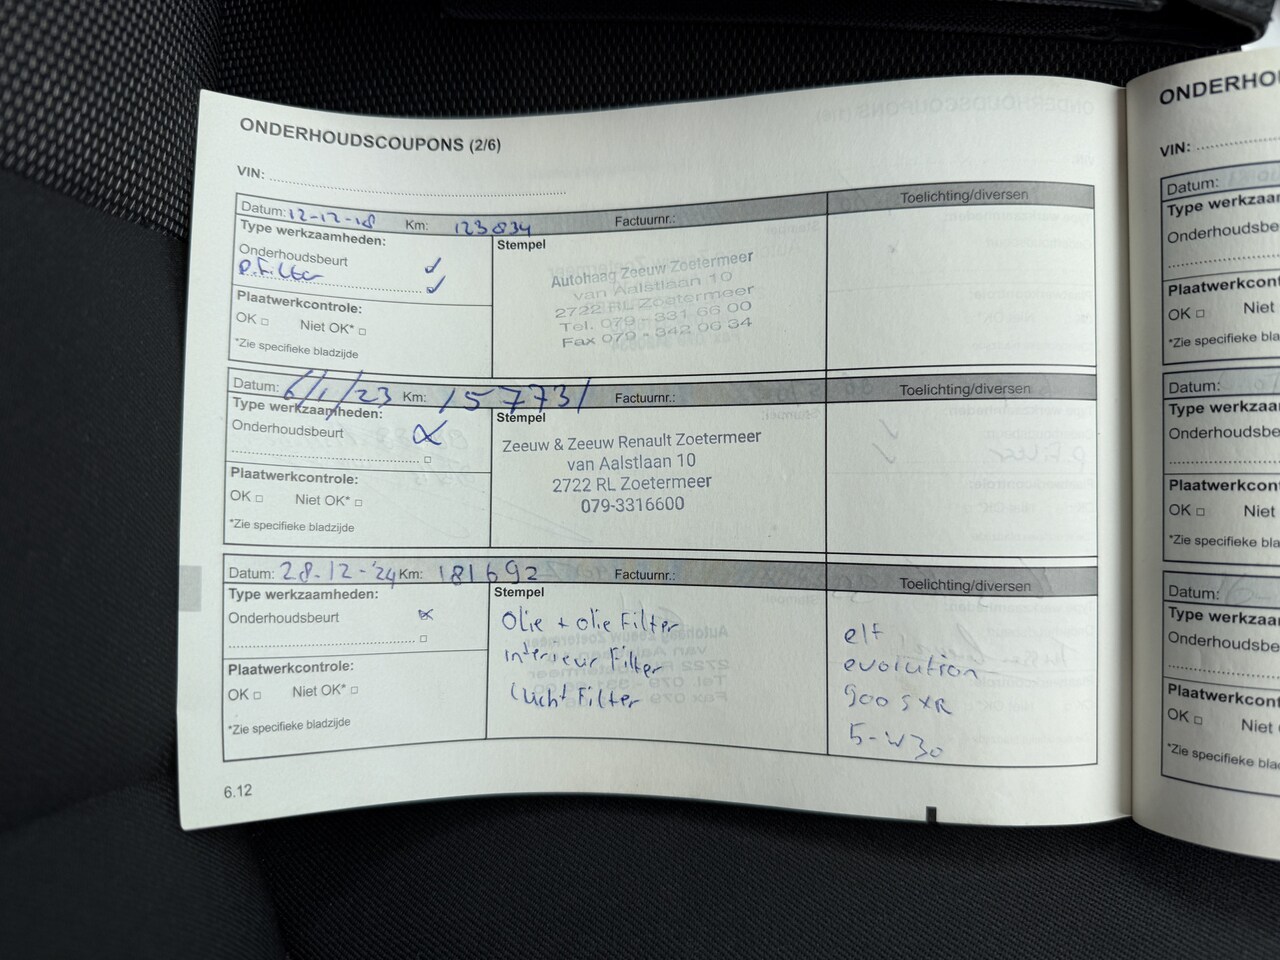 ONDERHOUDSCOUPONS (2/6)
VIN:
Datum: 12-12-18 Km: 123834 Factuurnr.: Toelichting/diversen
Type werkzaamheden:
Onderhoudsbeurt
P.Filter
Plaatwerkcontrole:
OK Niet OK*
*Zie specifieke bladzijde
Stempel
Autohaag Zeeuw Zoetermeer
van Aalstlaan 10
2722 RL Zoetermeer
Tel. 079 - 331 66 00
Fax 079 - 342 06 34
Datum: 6/1/23 Km: 157731 Factuurnr.: Toelichting/diversen
Type werkzaamheden:
Onderhoudsbeurt
Plaatwerkcontrole:
OK Niet OK*
*Zie specifieke bladzijde
Stempel
Zeeuw & Zeeuw Renault Zoetermeer
van Aalstlaan 10
2722 RL Zoetermeer
079-3316600
Datum: 28-12-'24 Km: 181692 Factuurnr.: Toelichting/diversen
Type werkzaamheden:
Onderhoudsbeurt
Plaatwerkcontrole:
OK Niet OK*
*Zie specifieke bladzijde
Stempel
Olie + olie Filter
interieur Filter
lucht Filter
elf
evolution
900 SXR
5-W30
6.12
ONDERHOU
VIN:
Datum:
Type werkzaa
Onderhoudsbe
Plaatwerkcon
OK Niet
*Zie specifieke bla
Datum:
Type werkzaa
Onderhoudsbe
Plaatwerkcon
OK Niet
*Zie specifieke bla
Datum:
Type werkzaa
Onderhoudsbe
Plaatwerkcon
OK Niet
*Zie specifieke blad